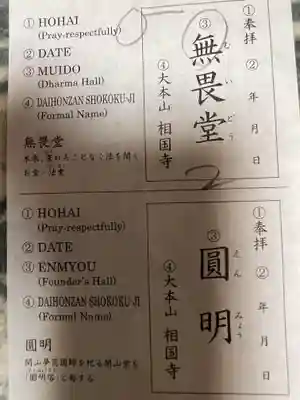 ① HOHAI
(Pray-respectfully)
② DATE
③ MUIDO
(Dharma Hall)
④ DAIHONZAN SHOKOKU-JI
(Formal Name)
無畏堂
お堂・法堂
①奉拝
② 年 月 日
③
無畏堂
む い どう
④大本山 相国寺
2
① HOHAI
(Pray-respectfully)
② DATE
③ ENMYOU
(Founder's Hall)
④ DAIHONZAN SHOKOKU-JI
(Formal Name)
圓明
開山夢窓國師を祀る開山堂を
「圓明塔」と称する
①奉拝
② 年 月 日
③
圓明
えん みょう
④大本山 相国寺